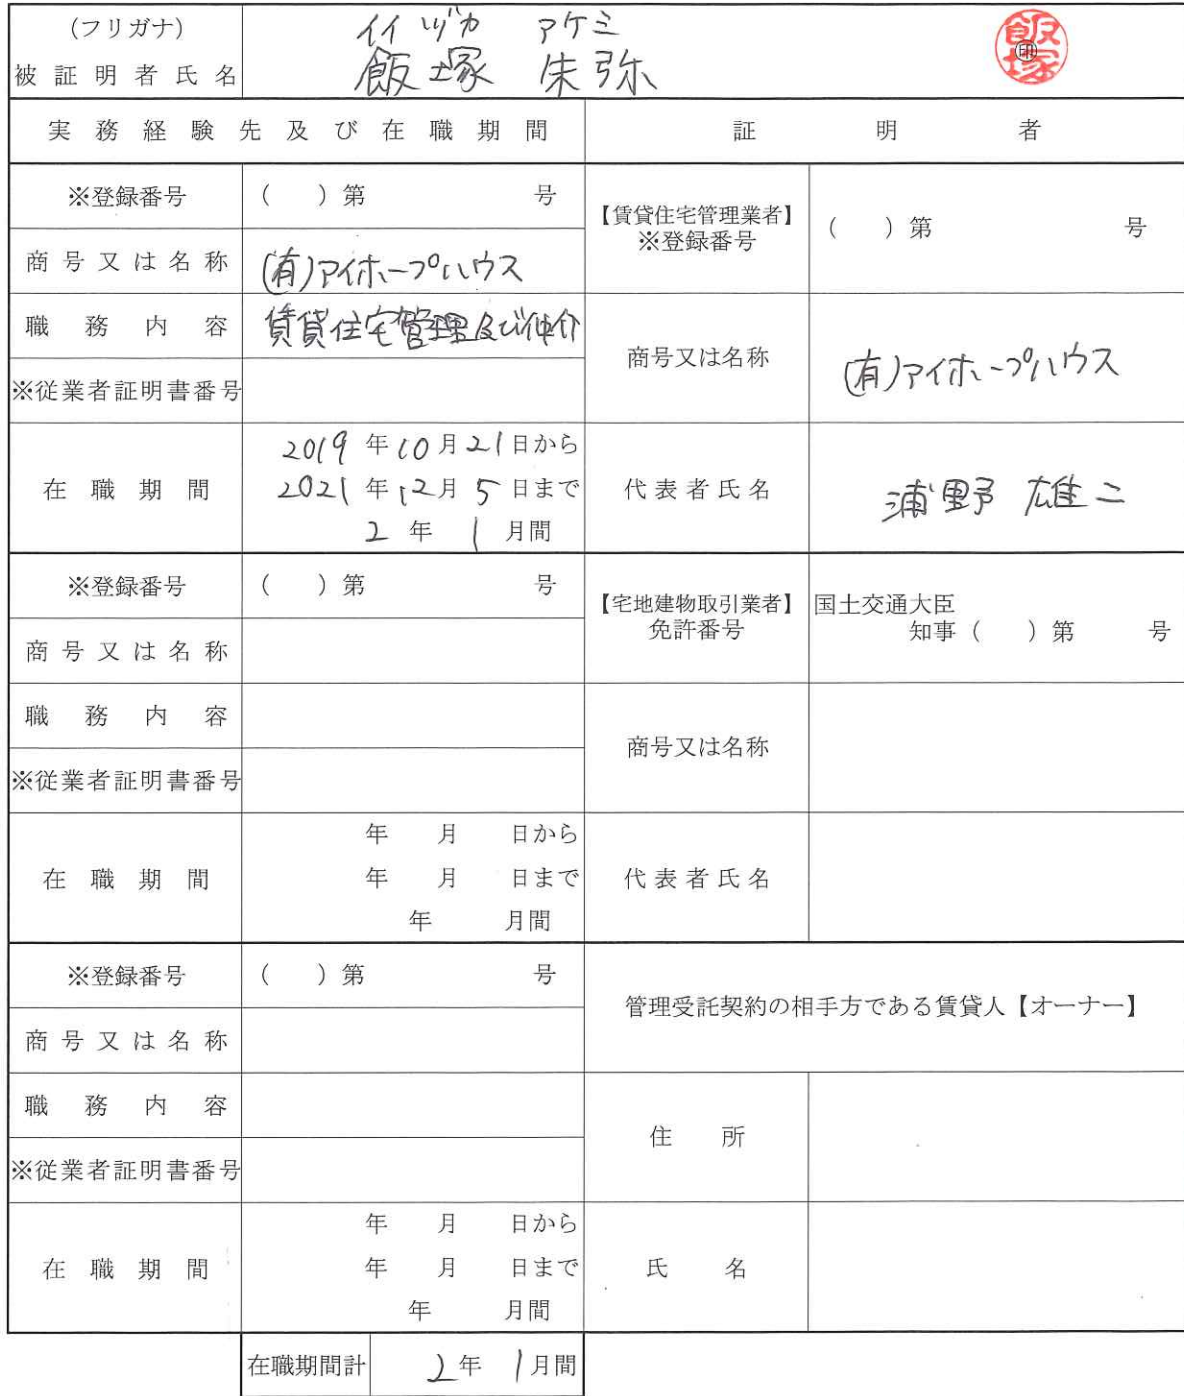 (フリガナ) イイヅカ アケミ
被証明者氏名 飯塚 朱弥 飯塚 ㊞
実務経験先及び在職期間 証明者
※登録番号 ( )第 号
【賃貸住宅管理業者】
※登録番号 ( )第 号
商号又は名称 (有)アイホープハウス
職務内容 賃貸住宅管理及び仲介
商号又は名称 (有)アイホープハウス
※従業者証明書番号
在職期間
2019年10月21日から
2021年12月5日まで
2年1月間
代表者氏名 浦野 雄二
※登録番号 ( )第 号
【宅地建物取引業者】
免許番号
国土交通大臣
知事( )第 号
商号又は名称
職務内容
商号又は名称
※従業者証明書番号
在職期間
年 月 日から
年 月 日まで
年 月間
代表者氏名
※登録番号 ( )第 号
管理受託契約の相手方である賃貸人【オーナー】
商号又は名称
職務内容
住所
※従業者証明書番号
在職期間
年 月 日から
年 月 日まで
年 月間
氏名
在職期間計 2年1月間